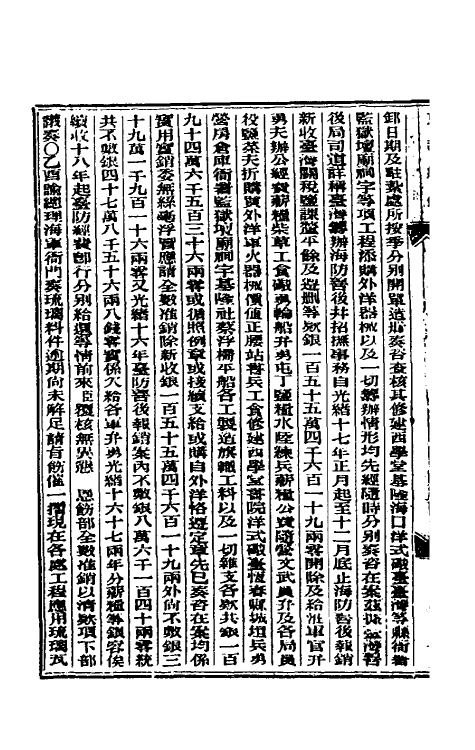 卸日期及駐紮處所按季分別開單造册奏咨查核其修建西學堂基隆海口洋式礮臺臺灣等縣衙署
監獄壇廟祠宇等項工程添購外洋器械以及一切籌辦情形均先經隨時分別奏咨在案茲據臺灣善
後局司道詳稱臺灣籌辦海防善後并招撫事務自光緒十七年正月起至十二月底止海防善後報銷
新收臺灣關稅鹽課釐平餘及造删等款銀一百五十五萬四千六百一十九兩零開除及給過軍官弁
勇夫辦公經費薪糧柴草工食礮勇輪船弁勇屯丁鹽糧水陸練兵薪糧公費隨營文武員弁及各局員
役鹽菜夫折購買外洋軍火器械價值正腰站書兵工食修建西學堂書院洋式礮臺恆春縣城垣兵勇
營房倉庫衙署監獄壇廟祠宇基隆社寮浮柵平船各工製造旗幟工料以及一切雜支各款共銀一百
九十四萬六千五百三十六兩零或循照例章或接續支給或購自外洋恪遵定章先已奏咨在案均係
實用實銷委無絲毫浮冒應請全數准銷除新收銀一百五十五萬四千六百一十九兩外尚不敷銀三
十九萬一千九百一十六兩零又光緒十六年臺防善後報銷案內不敷銀八萬六千一百四十兩零統
共不敷銀四十七萬八千五十六兩八錢零實係欠給各軍弁勇光緒十六十七兩年分薪糧等銀容俟
續收十八年起臺防經費卽行分別給還等情前來臣覆核無異懇　恩飭部全數准銷以清款項下部
議奏〇乙酉諭總理海軍衙門奏琉璃料件逾期尚未解足請旨飭催一摺現在各處工程應用琉璃瓦